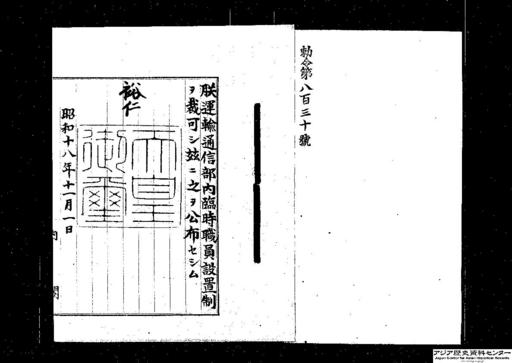 勅令第八百三十號
朕運輸通信部内臨時職員設置制
ヲ裁可シ玆ニ之ヲ公布セシム
裕仁
天皇御璽
昭和十八年十一月一日
内閣
アジア歴史資料センター
Japan Center for Asian Historical Records